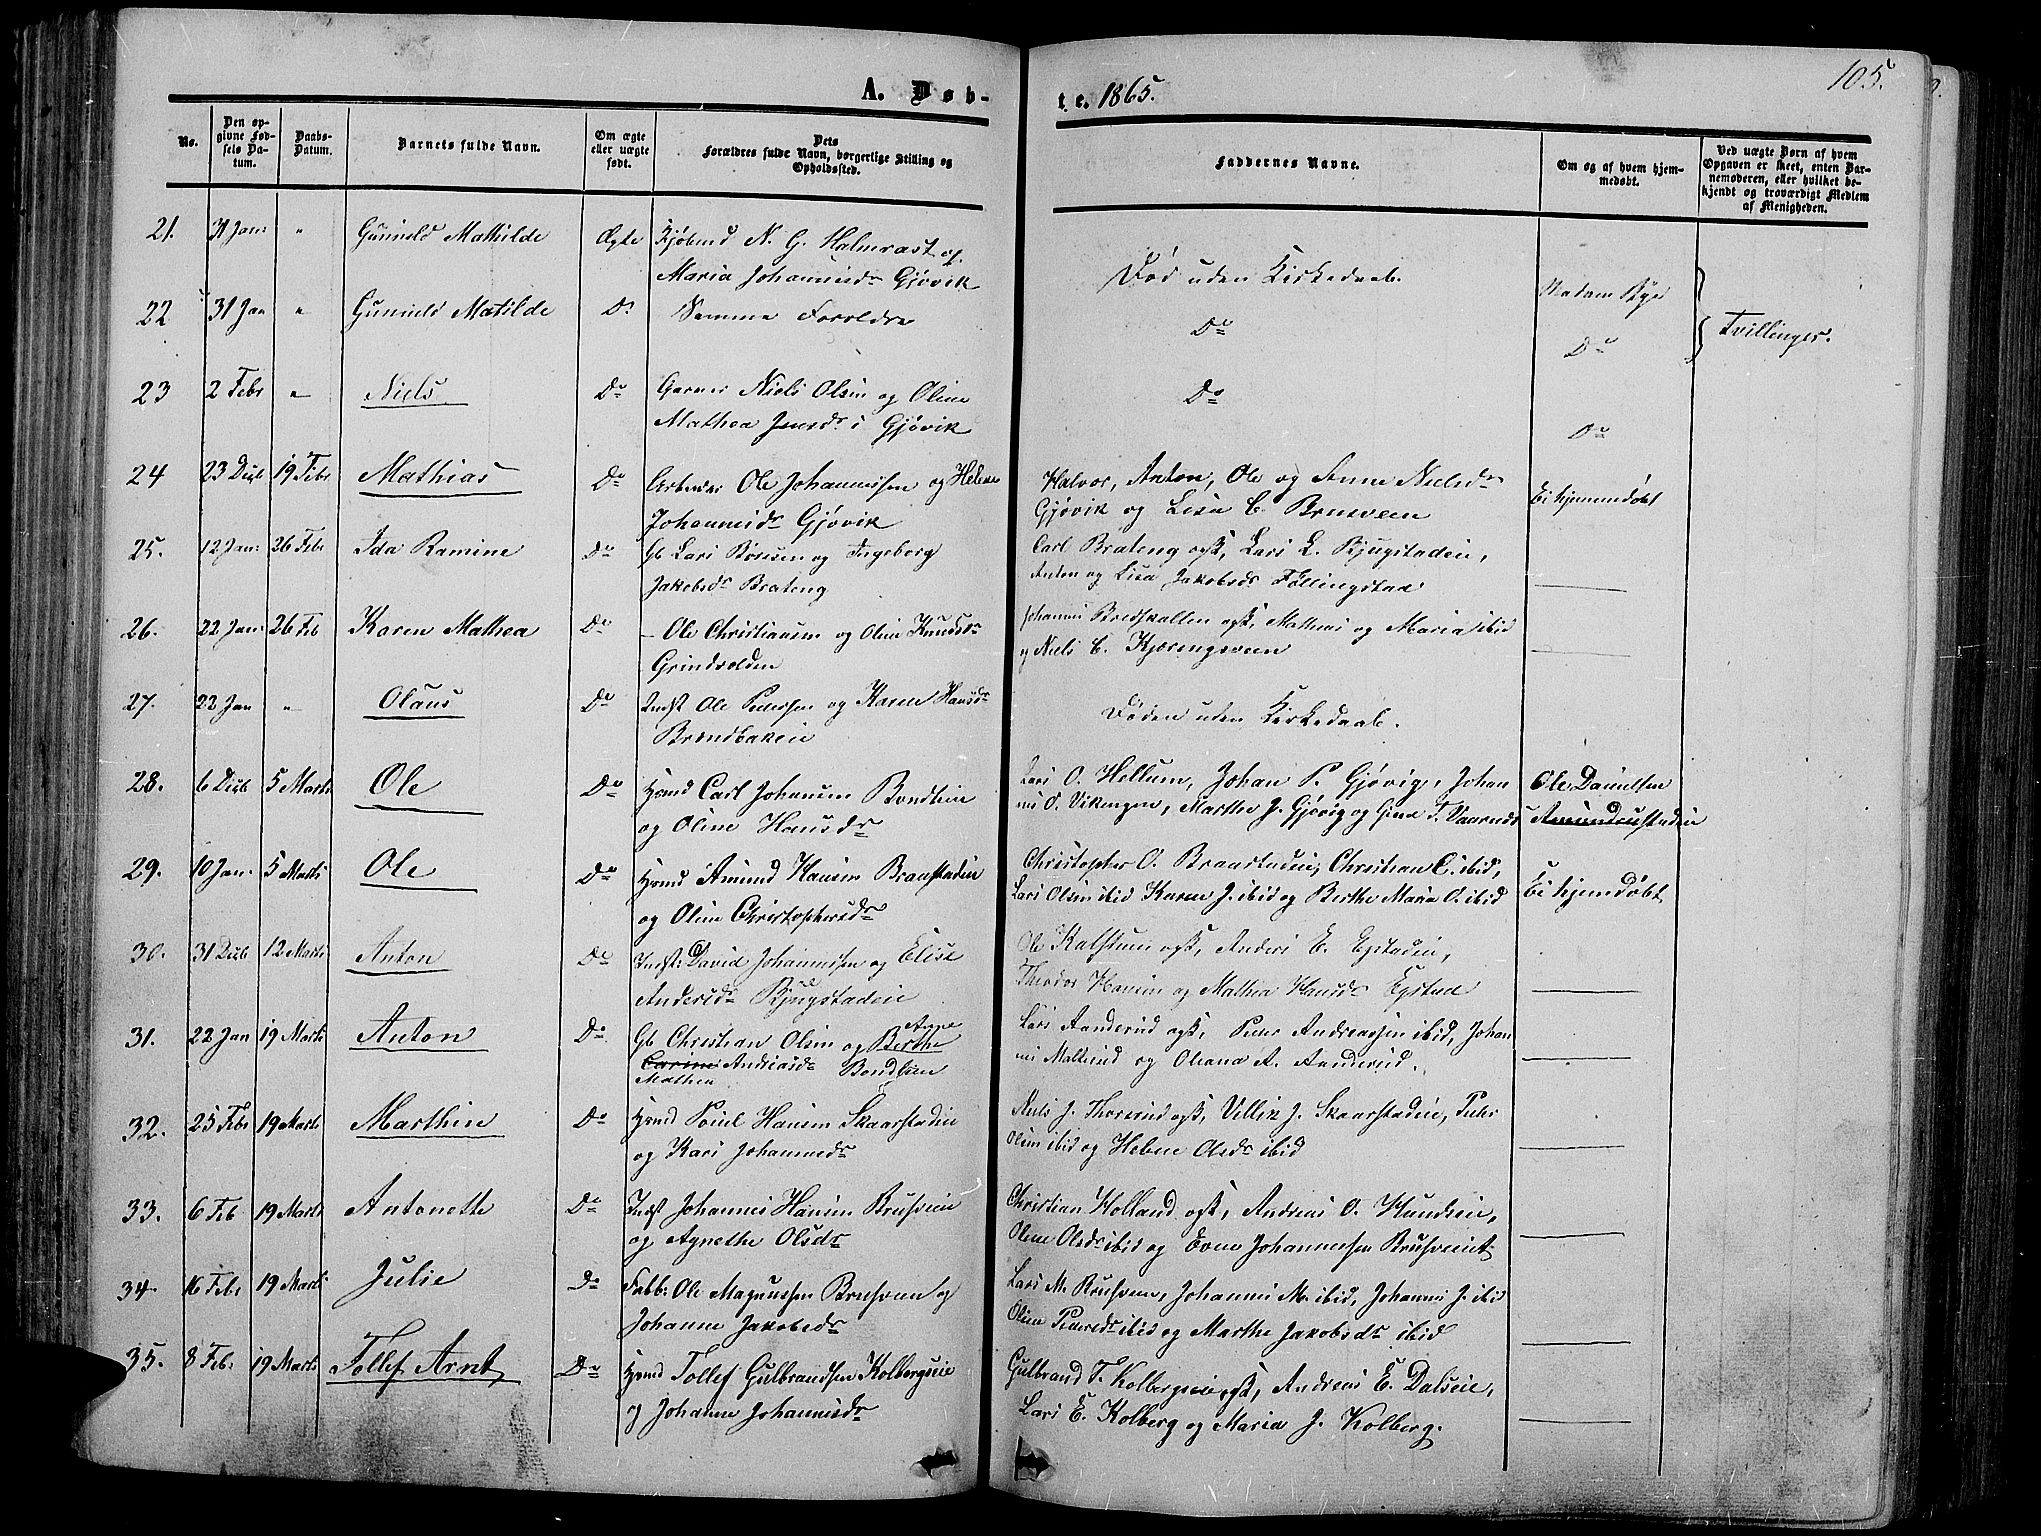 A. Døb-
t e. 1865.
105.
No.
Den op-
givne Fød-
sels Da-
tum.
Daabs-
Datum.
Barnets fulde Navn.
Om ægte
eller uægte
født.
Dets
Forældres fulde Navn, borgerlige Stilling og
Opholdssted.
Faddernes Navne.
Om og af hvem hjem-
medøbt.
Ved uægte Børn af hvem
Opgaven er skeet, enten Bar-
nemoderen, eller hvilket be-
kjendt og troværdigt Medlem
af Menigheden.
21. 31 Jan: " Gunnild Mathilde Ægte Kjøbmd N. G. Halmrast og
Maria Johannesdr Gjøvik
Død uden Kirkedaab. Madam Rye
22 31 Jan " Gunnild Matilde Do Samme Forældre
Do Do Tvillinger.
23 2 Febr " Niels Do Garver Niels Olsen og Oline
Mathea Jensdr i Gjøvik
Do Do
24 23 Decb 19 Febr Mathias Do Arbeider Ole Johannessen og Helene
Johannesdr Gjøvik
Halvor, Anton, Ole og Anne Nielsdr
Gjøvik og Lisa C. Brusveen Ei hjemmedøbt
25. 12 Jan: 26 Febr Ida Ramine Do Gb Lars Børesen og Ingeborg
Jakobsdr Brateng
Carl Brateng ogsk, Lars L. Bjugstadeie,
Anton og Lisa Jakobsdr Føllingstad
26. 22 Jan: 26 Feb Karen Mathea Do - Ole Christiansen og Oline Knudsdr
Grindvolden
Johannes Bredskallen ogsk, Mathias og Maria ibid
og Niels C. Kjørengsveen
27. 22 Jan " Olaus Do Indst Ole Pedersen og Karen Hansdr
Brændbakeie
Døden uden Kirkedaab.
28. 6 Decb 5 Marts Ole Do Hmd Carl Johansen Bondlien
og Oline Hansdr
Lars O. Hellum, Johan P. Gjøvig, Johan
nes O. Vikingen, Marthe J. Gjøvig og Sina T. Vaarnæs
Ole Danielsen
Amundrustadeie
29. 10 Jan. 5 Marts Ole Do Hmd Amund Hansen Braastadeie
og Oline Christophersdr
Christopher O. Braastadeie, Christian C. ibid,
Lars Olsen ibid Karen J. ibid og Berthe Maria O. ibid Ei hjemdøbt
30. 31 Decb 12 Marts Anton Do Indst: David Johannessen og Elise
Andersdr Bjugstadeie
Ole Kalstum ogsk, Anders E. Egstadeie,
Theodor Hansen og Mathea Hansdr Egstad
31. 22 Jan 19 Marts Anton Do Gb Christian Olsen og Berthe Anne
Carine Andreasdr Bondlien
Mathea
Lars Aanderud ogsk, Peder Andreassen ibid, Johan
nes Malterud og Oliana A. Aanderud.
32. 25 Febr 19 Marts Marthin Do Hmd Poul Hansen Skaarstadeie
og Kari Johannesdr
Niels J. Thorerud ogsk, Villik J. Skaarstadeie, Peder
Olsen ibid og Helene Olsdr ibid
33. 6 Feb 19 Marts Antonette Do Indst Johannes Hansen Brusveeie
og Agnethe Olsdr
Christian Holland ogsk, Andreas O. Hundseie,
Oline Olsdr ibid og Even Johannessen Brusveeiet
34. 16 Febr 19 Marts Julie Do Fabb: Ole Magnussen Brusveen og
Johanne Jakobsdr
Lars M. Brusveen, Johannes M. ibid, Johannes J. ibid
Oline Pedersdr ibid og Marthe Jakobsdr ibid
35. 8 Feb: 19 Marts Tollef Arnt Do Hmd Tollef Gulbrandsen Kolbergseie
og Johanne Johannesdr
Gulbrand T. Kolbergseie ogsk, Andreas E. Dalseie,
Lars E. Kolberg og Maria J. Kolberg.